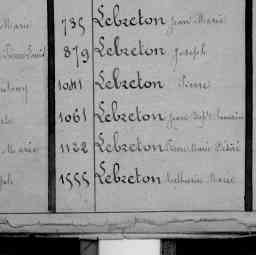 Marie 735 Lebreton Jean Marie
879 Lebreton Joseph
1041 Lebreton Pierre
1061 Lebreton Jean Bapte
Marie 1122 Lebreton Pierre Marie Désiré
1555 Lebreton Mathurin Marie